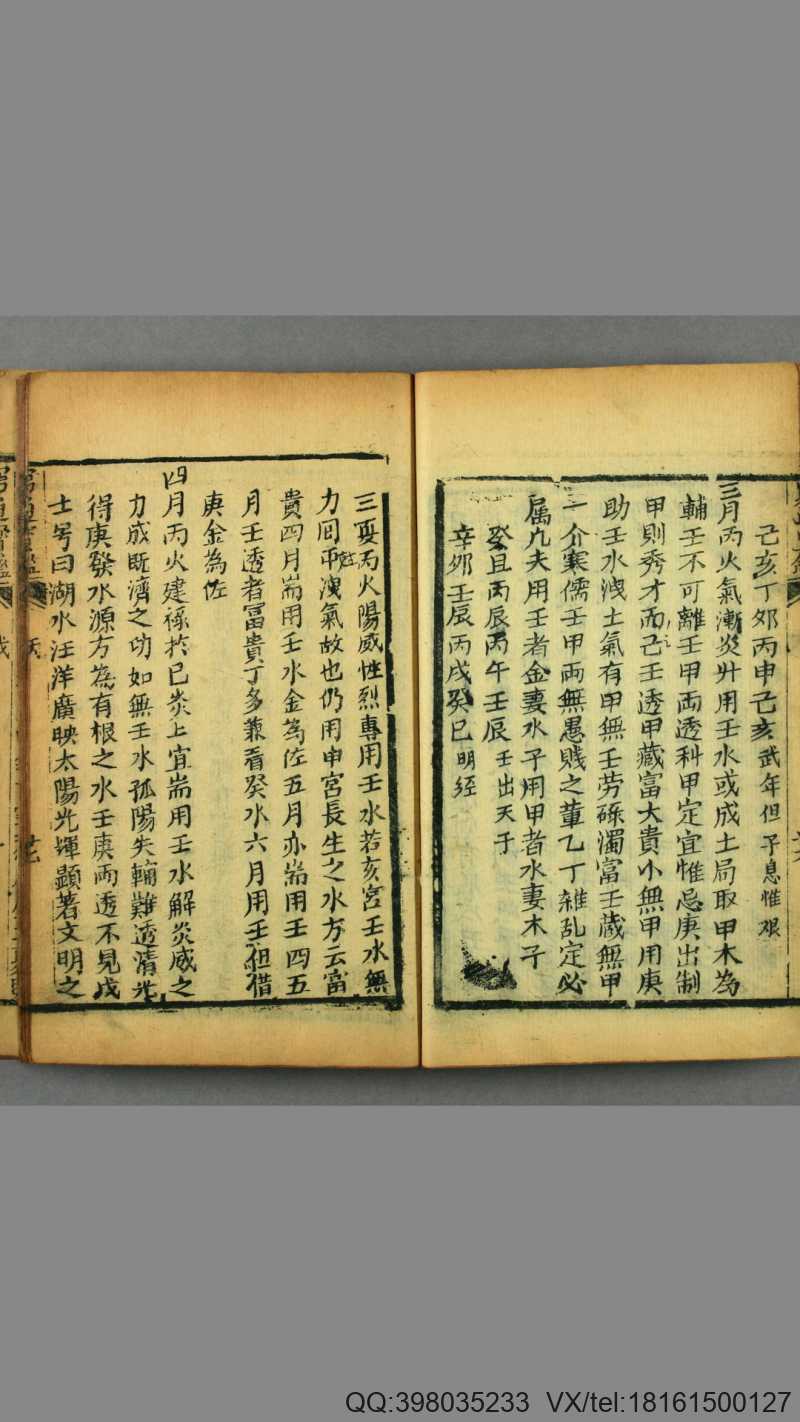 己亥丁卯丙申己亥武年但子息惟艰
三月丙火氣漸炎升用壬水或成土局取甲木為
輔壬不可離壬甲两透科甲定宜惟忌庚出制
甲則秀才而已壬透甲藏富大貴小無甲用庚
助壬水洩土氣有甲無壬劳碌濁富壬藏無甲
一介寒儒壬甲两無愚贱之軰乙丁雜乱定必
属凢夫用壬者金妻水子用甲者水妻木子
癸丑丙辰丙午壬辰壬出天子
辛卯壬辰丙戌癸巳明经
三夏丙火陽威性烈專用壬水若亥宫壬水無
力回洩氣故也仍用申宫長生之水方云富
貴四月耑用壬水金為佐五月亦耑用壬四五
月壬透者冨貴丁多兼看癸水六月用壬但借
庚金為佐
四月丙火建禄扵巳炎上宜耑用壬水解炎威之
力成既濟之功如無壬水孤陽失輔難透清光
得庚發水源方為有根之水壬庚两透不見戊
士号曰湖水汪洋廣映太陽光輝顕著文明之
QQ:398035233 VX/tel:18161500127